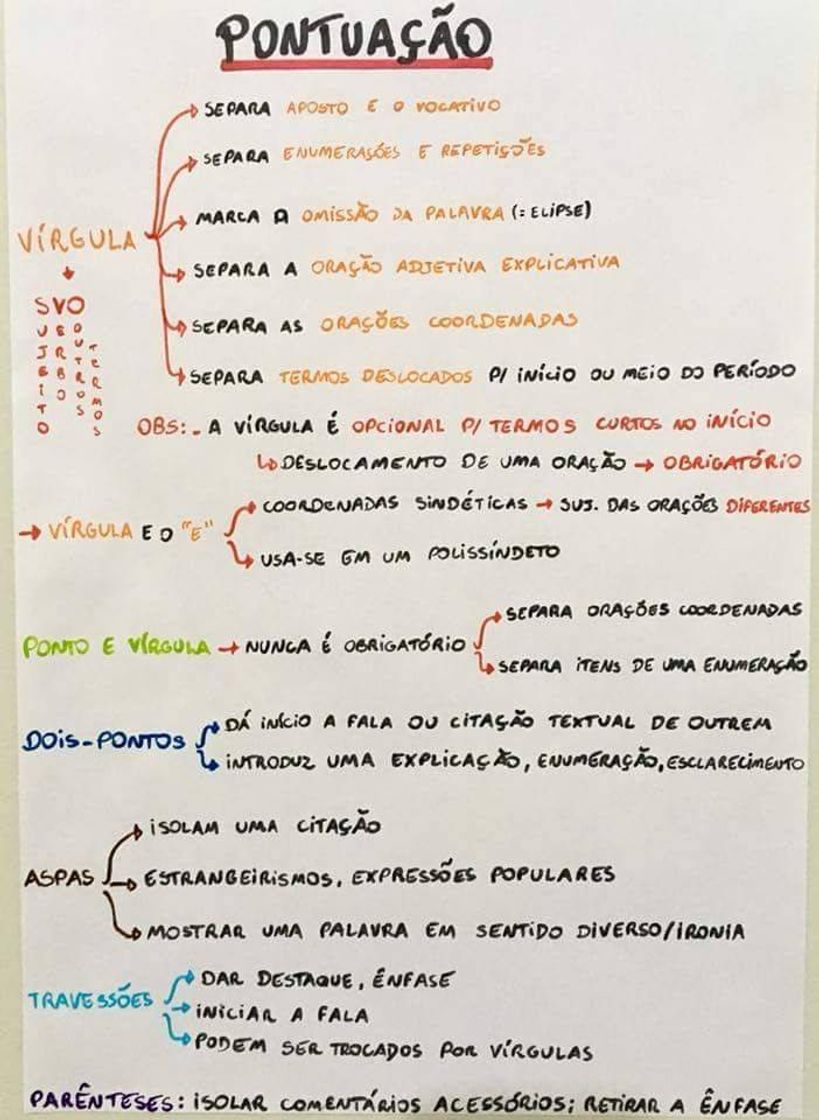 PONTUAÇÃO
SEPARA APOSTO E O VOCATIVO
SEPARA ENUMERAÇÕES E REPETIÇÕES
MARCA A OMISSÃO DA PALAVRA (= ELIPSE)
VÍRGULA
SEPARA A ORAÇÃO ADJETIVA EXPLICATIVA
SEPARA AS ORAÇÕES COORDENADAS
SEPARA TERMOS DESLOCADOS P/ INÍCIO OU MEIO DO PERÍODO
SVO
SUJEITO
VERBO
OUTROS
TERMOS
OBS:. A VÍRGULA É OPCIONAL P/ TERMOS CURTOS NO INÍCIO
DESLOCAMENTO DE UMA ORAÇÃO → OBRIGATÓRIO
→ VÍRGULA E O "E"
COORDENADAS SINDÉTICAS → SUJ. DAS ORAÇÕES DIFERENTES
USA-SE EM UM POLISSÍNDETO
PONTO E VÍRGULA → NUNCA É OBRIGATÓRIO
SEPARA ORAÇÕES COORDENADAS
SEPARA ITENS DE UMA ENUMERAÇÃO
DOIS-PONTOS
DÁ INÍCIO A FALA OU CITAÇÃO TEXTUAL DE OUTREM
INTRODUZ UMA EXPLICAÇÃO, ENUMERAÇÃO, ESCLARECIMENTO
ASPAS
ISOLAM UMA CITAÇÃO
ESTRANGEIRISMOS, EXPRESSÕES POPULARES
MOSTRAR UMA PALAVRA EM SENTIDO DIVERSO/IRONIA
TRAVESSÕES
DAR DESTAQUE, ÊNFASE
INICIAR A FALA
PODEM SER TROCADOS POR VÍRGULAS
PARÊNTESES: ISOLAR COMENTÁRIOS ACESSÓRIOS; RETIRAR A ÊNFASE